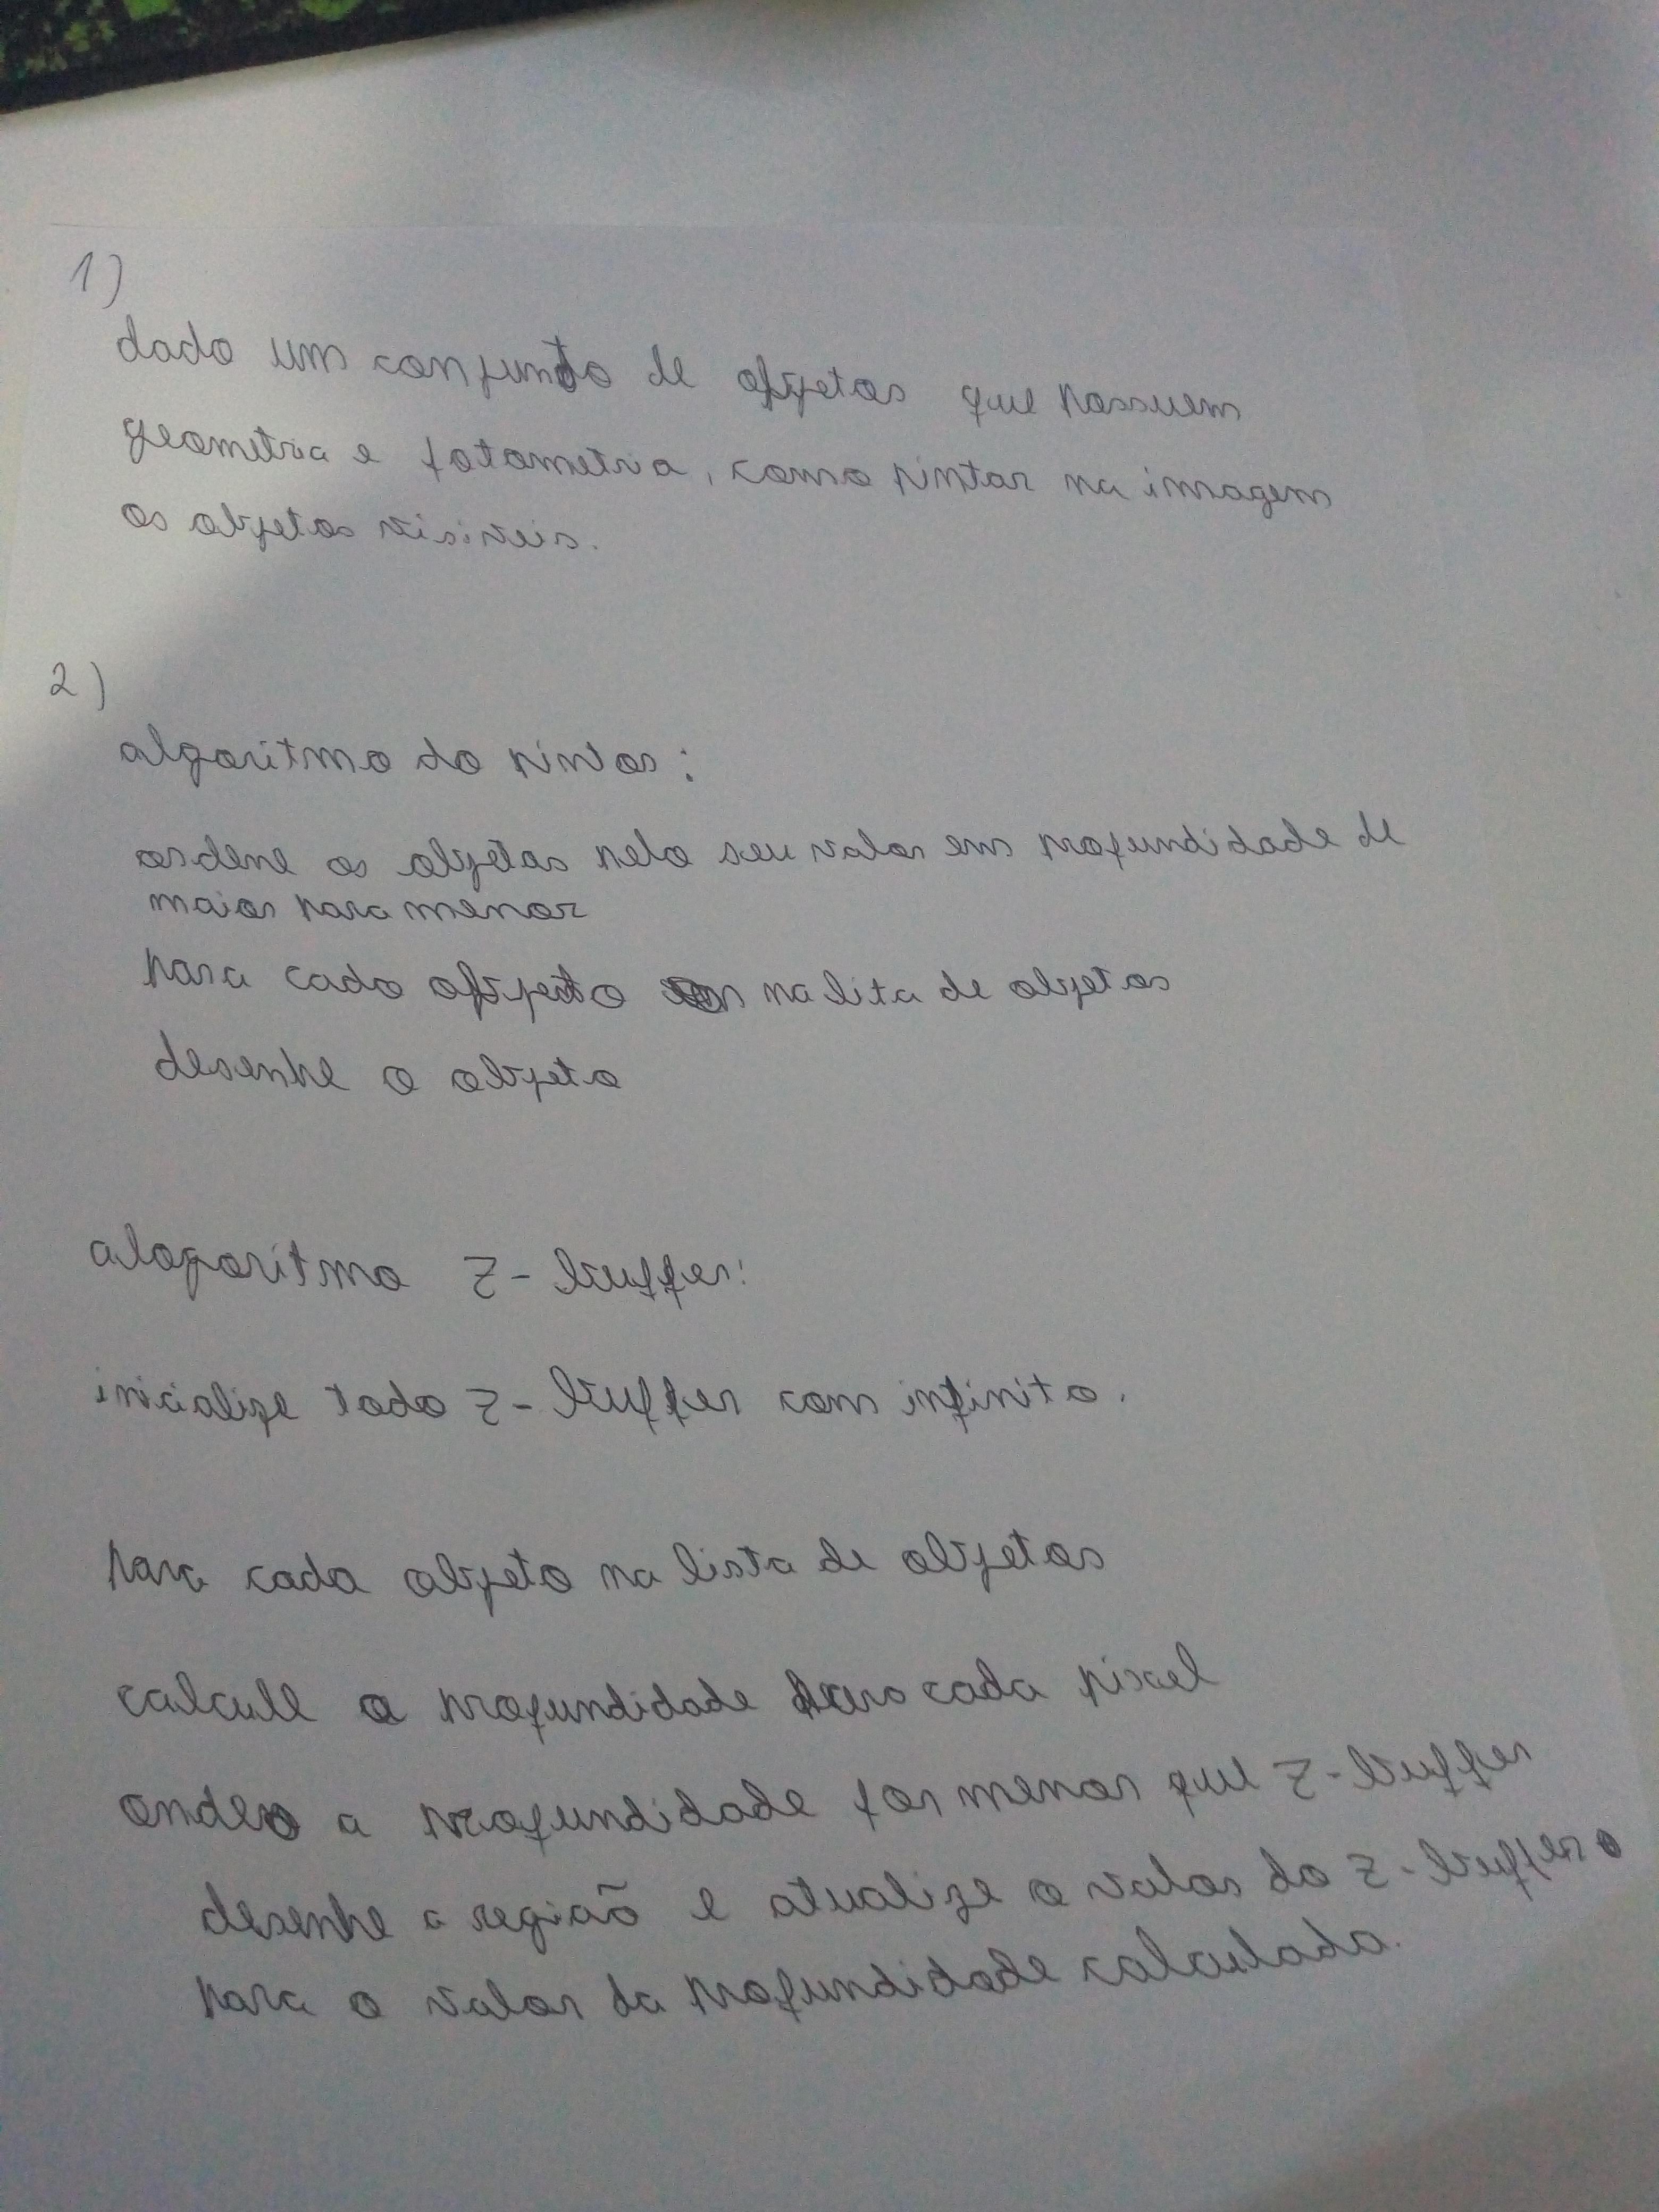 1)
dado um conjunto de objetos que possuem
geometria e fotometria, como pintar na imagem
os objetos visiveis.
2)
algoritmo do pintor:
ordene os objetos pelo seu valor em profundidade de
maior para menor
para cado objeto na lita de objetos
desenhe o objeto
alogoritmo z-buffer:
inicialize todo z-buffer com infinito.
para cada objeto na lista de objetos
calcule a profundidade para cada pixel
onde a profundidade for menor que z-buffer
desenhe a região e atualize o valor do z-buffer
para o valor da profundidade calculada.